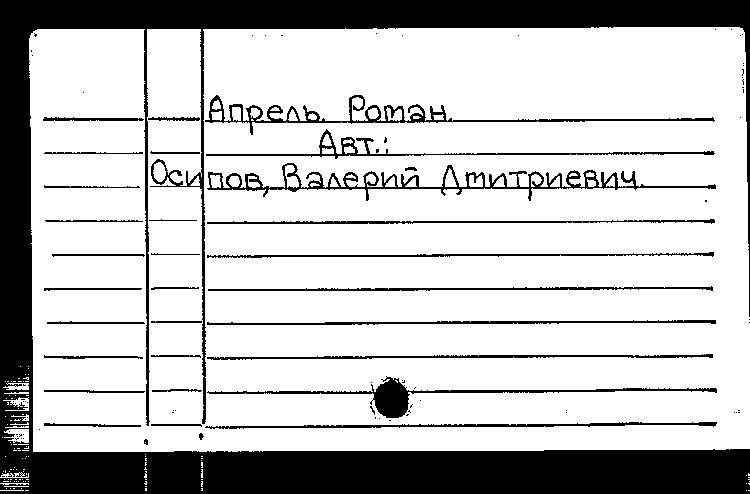 Апрель. Роман.
Авт.:
Осипов, Валерий Дмитриевич.